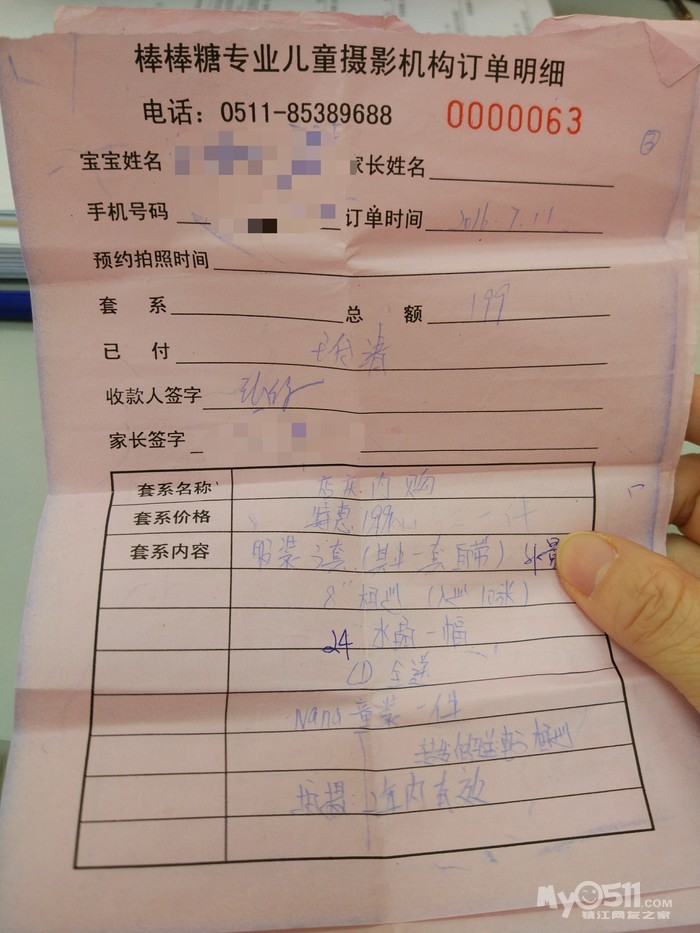 棒棒糖专业儿童摄影机构订单明细
电话：0511-85389688 0000063
宝宝姓名 家长姓名
手机号码 订单时间 2016.7.11
预约拍照时间
套 系 总 额 199
已 付
收款人签字
家长签字
套系名称 店庆内购
套系价格 特惠199
套系内容 服装 套(其中一套自带) 外景
8" 相册 (入册10张)
24 水晶一幅
CD全送
Nano童装一件
拍摄：2年内有效
My0511.COM
镇江网友之家